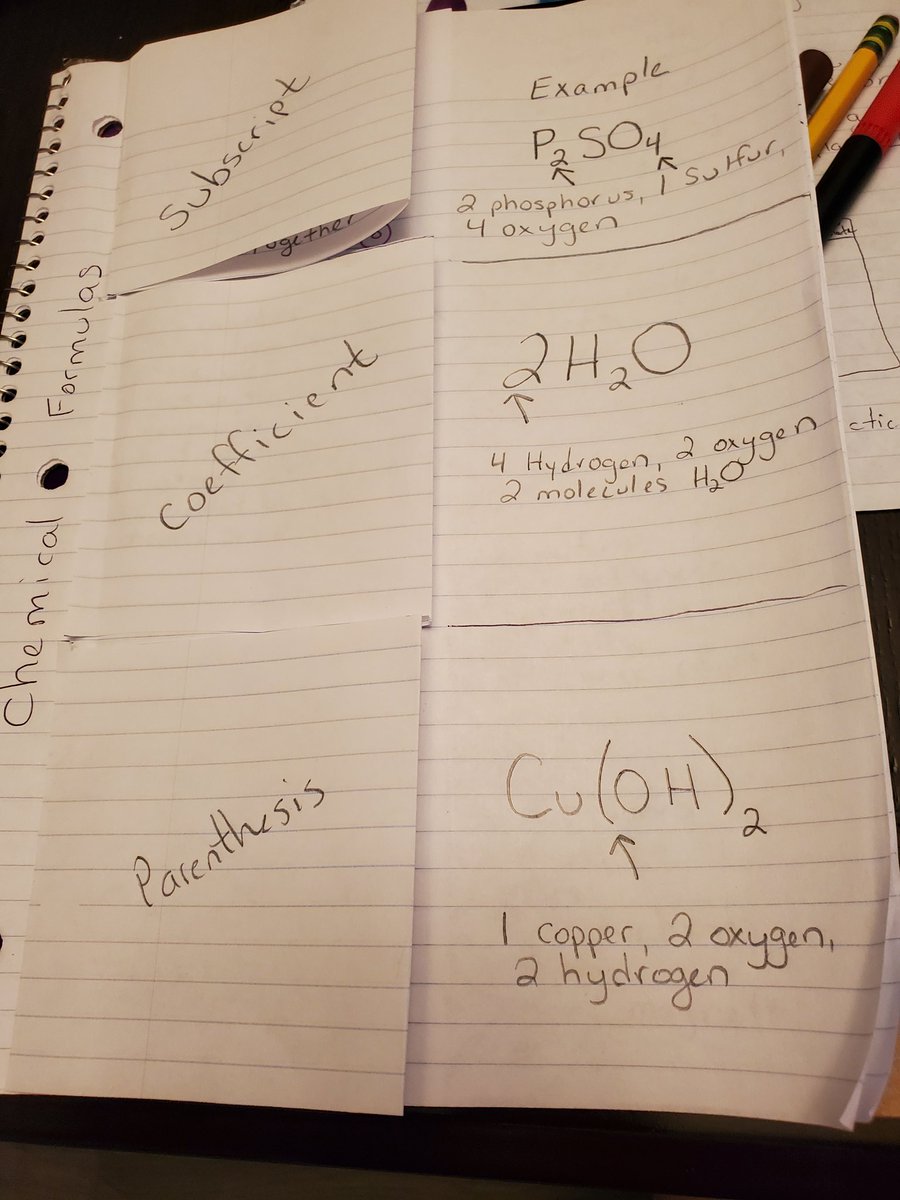 Chemical Formulas
Subscript
Example
P₂SO₄
2 phosphorus, 1 Sulfur,
4 oxygen
together
Coefficient
2H₂O
4 Hydrogen, 2 oxygen
2 molecules H₂O
Parenthesis
Cu(OH)₂
1 copper, 2 oxygen,
2 hydrogen